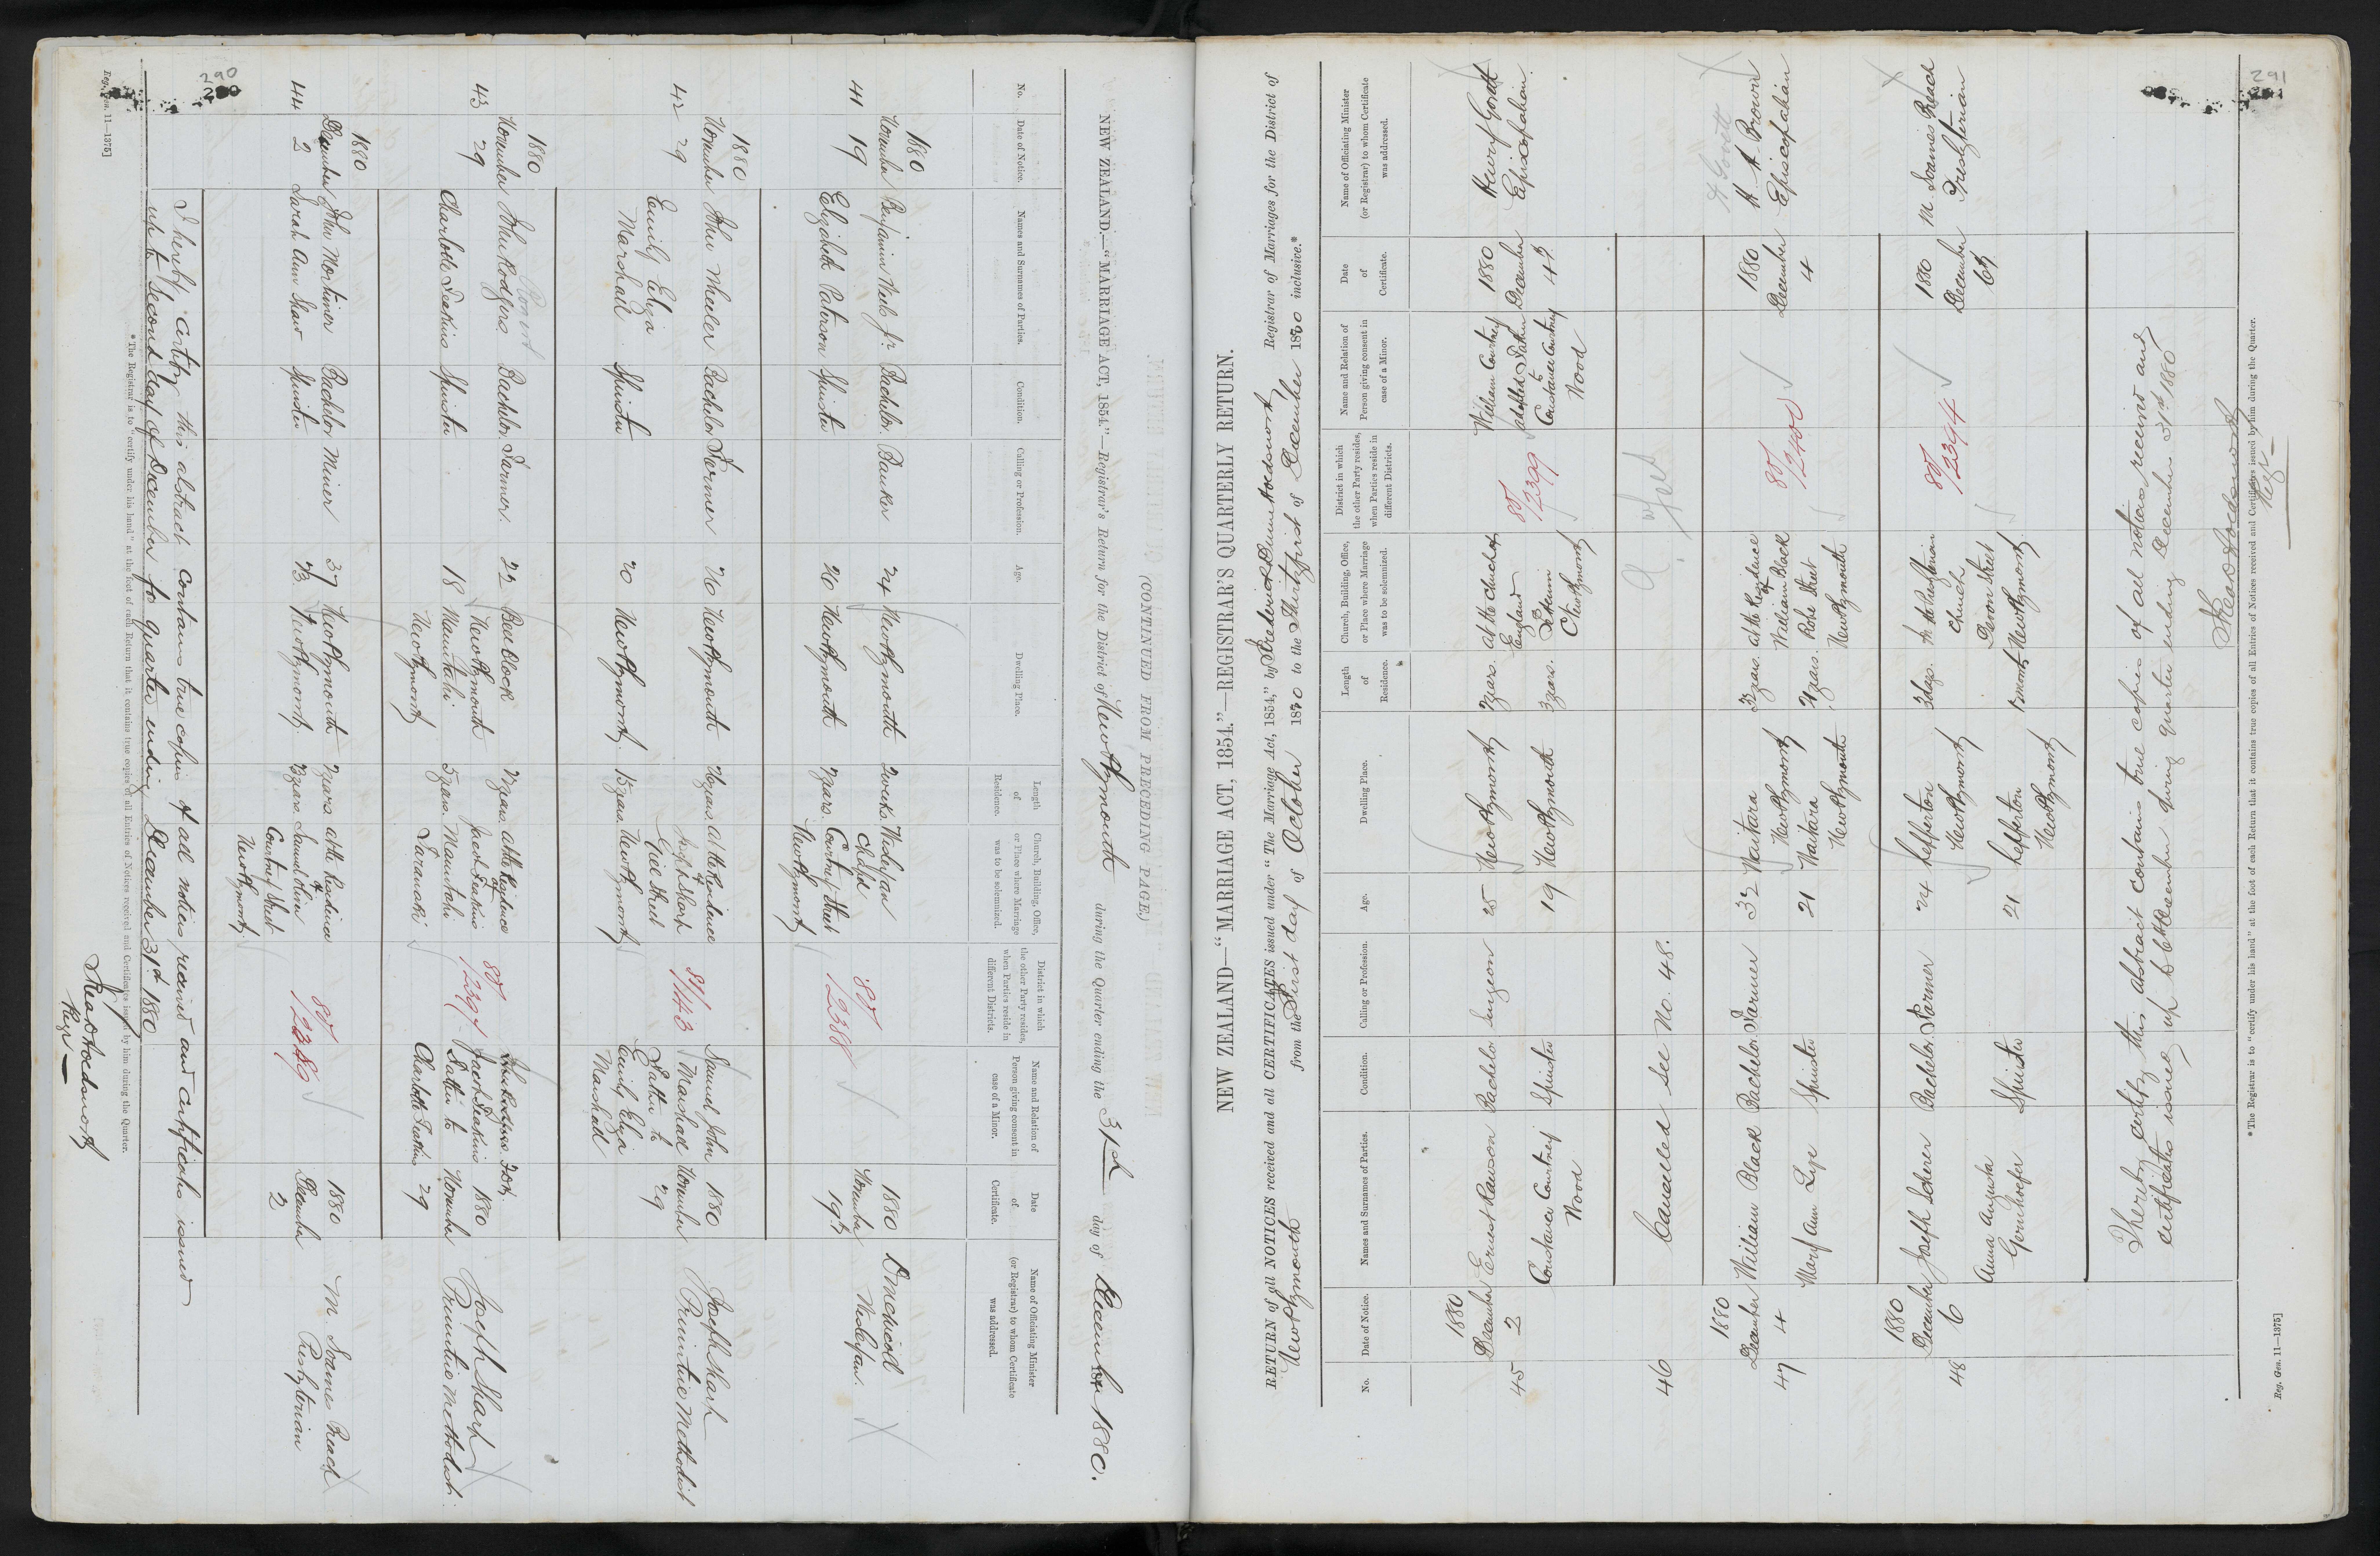 290
(CONTINUED FROM PRECEDING PAGE.)
NEW ZEALAND.—"MARRIAGE ACT, 1854."—Registrar's Return for the District of New Plymouth during the Quarter ending the 31st day of December 1880.
No.
Date of Notice.
Names and Surnames of Parties.
Condition.
Calling or Profession.
Age.
Dwelling Place.
Length of Residence.
Church, Building, Office, or Place where Marriage was to be solemnized.
District in which the other Party resides, when Parties reside in different Districts.
Name and Relation of Person giving consent in case of a Minor.
Date of Certificate.
Name of Officiating Minister (or Registrar) to whom Certificate was addressed.
41
1880
November
19
Benjamin Wells Jr. Bachelor. Banker 24 New Plymouth 2 weeks. Wesleyan
Chapel
Elizabeth Paterson Spinster 20 New Plymouth years. Courtney Street
New Plymouth
80/2388
1880
November
19th
Wesleyan.
42
1880
November
29
John Wheeler Bachelor Farmer 26 New Plymouth years. At the Residence
of
Joseph Sharp
Gill Street
Emily Eliza
Marshall Spinster 20 New Plymouth. years. New Plymouth
81/143
Samuel John
Marshall
Father to
Emily Eliza
Marshall
1880
November
29
Joseph Sharp
Primitive Methodist
43
1880
November
29
John Rodgers Bachelor. Farmer. 22 Bell Block
New Plymouth
years. At the Residence
of
Jacob Seakins
Charlotte Seakins Spinster 18 Mautahi
New Plymouth
5 years. Mautahi
Taranaki
80/2397
Jacob Seakins
Father to
Charlotte Seakins
1880
November
29
Joseph Sharp
Primitive Methodist.
44
1880
December
2
John Mortimer Bachelor Miner 37 New Plymouth years at the Residence
of
Sarah Ann Shaw Spinster New Plymouth. years. Samuel Oliver
Courtney Street
New Plymouth.
80/2389
1880
December
2
M. Soames Breach
Presbyterian
I hereby certify this abstract contains true copies of all notices received and certificates issued
up to Second day of December for quarter ending December 31st 1880
Regr
*The Registrar is to "certify under his hand" at the foot of each Return that it contains true copies of all Entries of Notices received and Certificates issued by him during the Quarter.
Reg. Gen. 11—1375]
291
NEW ZEALAND—"MARRIAGE ACT, 1854."—REGISTRAR'S QUARTERLY RETURN.
RETURN of all NOTICES received and all CERTIFICATES issued under "The Marriage Act, 1854," by Registrar of Marriages for the District of
New Plymouth from the First day of October 1880 to the Thirtyfirst of December 1880 inclusive.*
No.
Date of Notice.
Names and Surnames of Parties.
Condition.
Calling or Profession.
Age.
Dwelling Place.
Length of Residence.
Church, Building, Office, or Place where Marriage was to be solemnized.
District in which the other Party resides, when Parties reside in different Districts.
Name and Relation of Person giving consent in case of a Minor.
Date of Certificate.
Name of Officiating Minister (or Registrar) to whom Certificate was addressed.
45
1880
December
2
Ernest Rawson Bachelor Surgeon 25 New Plymouth years. At the Church of
England
Constance Courtney
Wood
Spinster 19 New Plymouth 3 years.
New Plymouth
80/2399
William Courtney
adopted Father
to
Constance Courtney
Wood
1880
December
4th
Henry Govett
Episcopalian.
46 Cancelled See No. 48.
47
1880
December
4
William Black Bachelor Farmer 32 Waitara
New Plymouth
3 years. At the Residence
of
William Black
Mary Ann Lye Spinster 21 Waitara
New Plymouth
years. Robe Street
New Plymouth
80/2400
1880
December
4
H Govett
H. H. Brown
Episcopalian
48
1880
December
6
Joseph Scherer Bachelor Farmer 24 Lepperton
New Plymouth
3 days. In the Presbyterian
Church
Devon Street
New Plymouth
Anna Augusta
Gernhoefer
Spinster 21 Lepperton
New Plymouth
12 months
80/2394
1880
December
6th
M. Soames Breach
Presbyterian
I hereby certify this abstract contains true copies of all notices received and
certificates issued up to 6th December during quarter ending December 31st 1880
Regr
*The Registrar is to "certify under his hand" at the foot of each Return that it contains true copies of all Entries of Notices received and Certificates issued by him during the Quarter.
Reg. Gen. 11—1375]